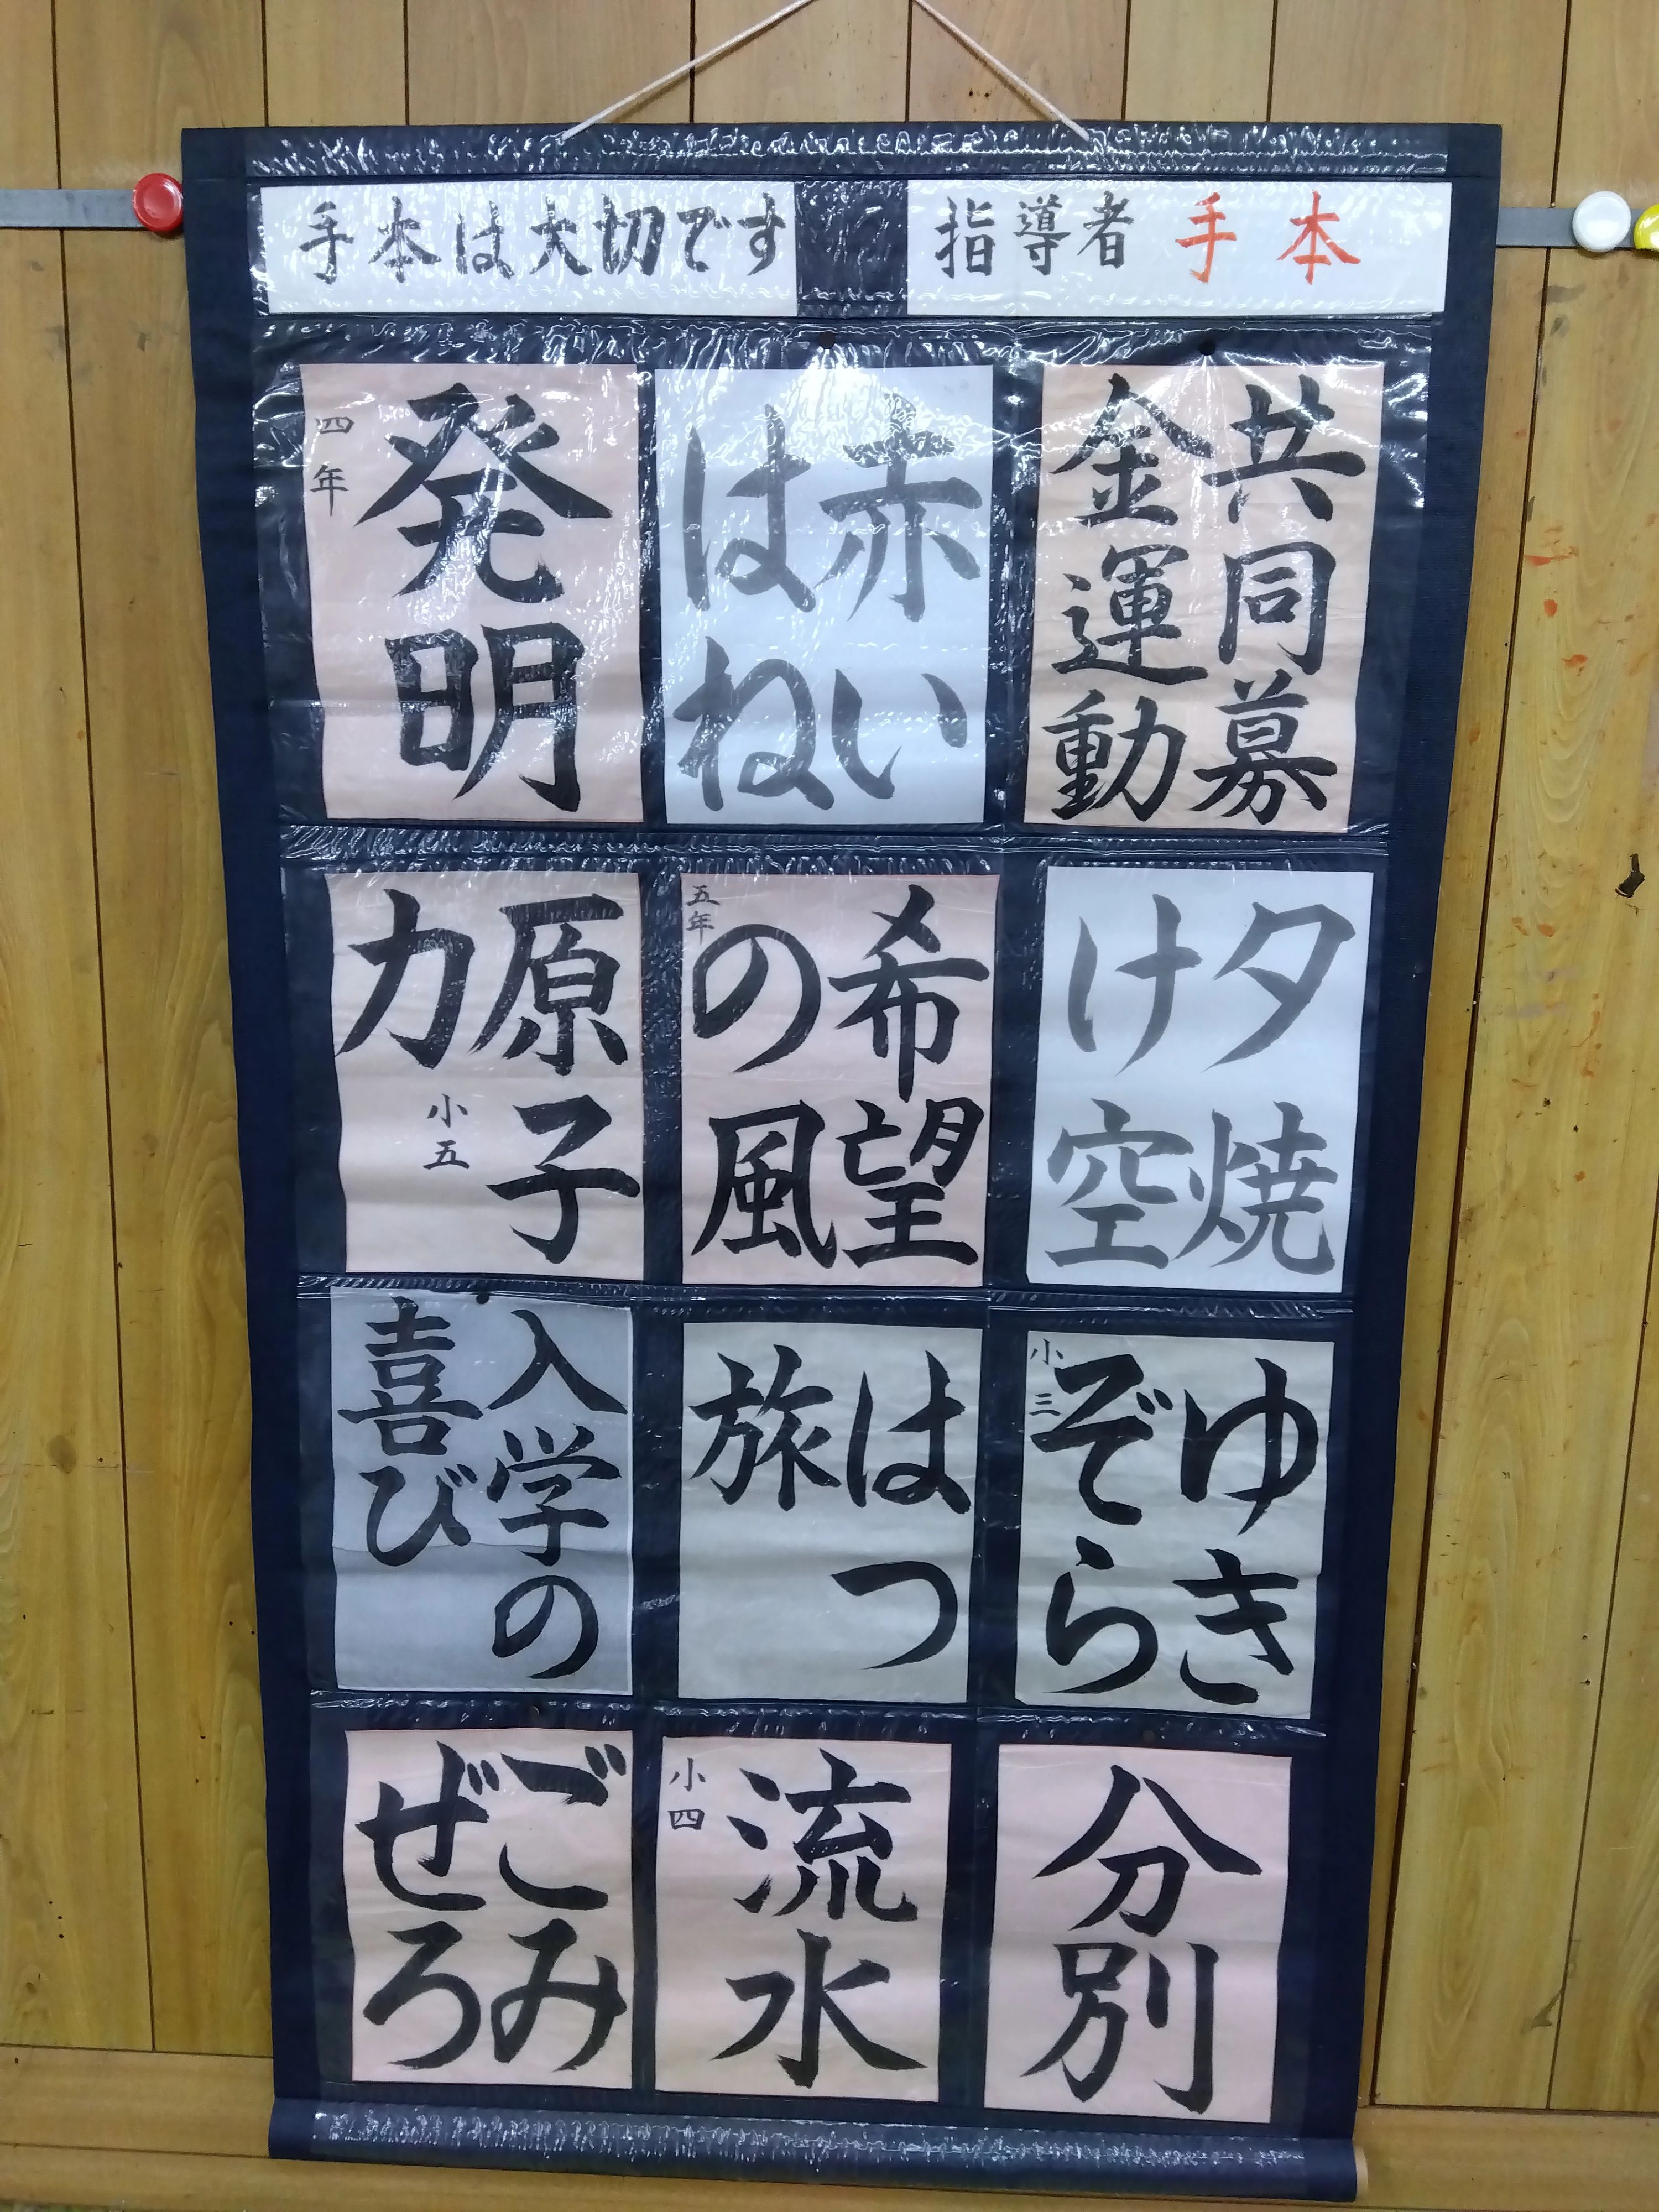 指導者 手本
手本は大切です
共同募
金運動
赤い
はね
発明
四年
夕焼
け空
希望
の風
五年
原子
力
小五
ゆき
ぞら
小三
はつ
旅
入学の
喜び
分別
流水
小四
ごみ
ぜろ